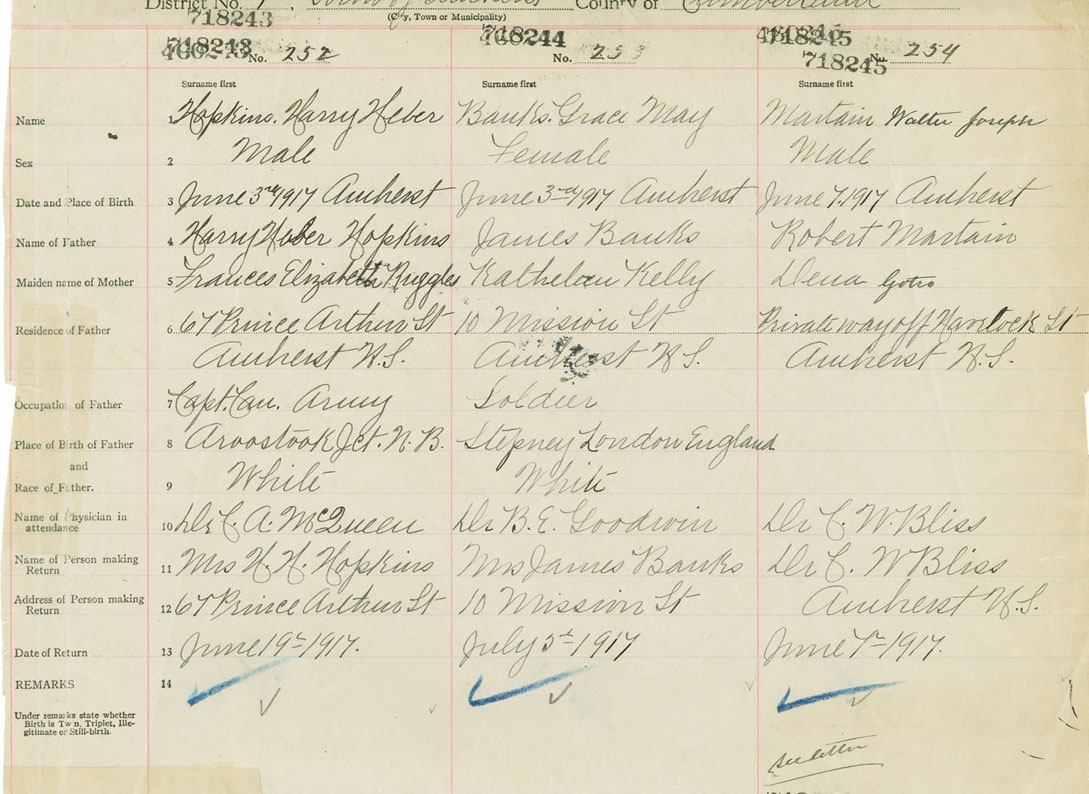 District No. 7, Town of Amherst County of Cumberland
(City, Town or Municipality)
718243
718243 No. 252 718244 No. 253 718245 No. 254
718245
Surname first Surname first Surname first
Name 1 Hopkins. Harry Heber Banks. Grace May Martain Walter Joseph
Sex 2 Male Female Male
Date and Place of Birth 3 June 3rd 1917 Amherst June 3rd 1917 Amherst June 7. 1917 Amherst
Name of Father 4 Harry Heber Hopkins James Banks Robert Martain
Maiden name of Mother 5 Frances Elizabeth Ruggles Kathelean Kelly Lena Goto
Residence of Father 6 67 Prince Arthur St 10 Mission St Private way off Havelock St
Amherst N.S. Amherst N.S. Amherst N.S.
Occupation of Father 7 Capt. Can. Army Soldier
Place of Birth of Father 8 Aroostook Jct. N.B. Stepney London England
and
Race of Father. 9 White White
Name of Physician in
attendance 10 Dr C. A. McQueen Dr B. E. Goodwin Dr C. W. Bliss
Name of Person making
Return 11 Mrs H. H. Hopkins Mrs James Banks Dr C. W Bliss
Address of Person making
Return 12 67 Prince Arthur St 10 Mission St Amherst N.S.
Date of Return 13 June 19th 1917. July 5th 1917 June 7th 1917.
REMARKS 14
Under remarks state whether
Birth is Twin, Triplet, Ille-
gitimate or Still-birth.
see letter